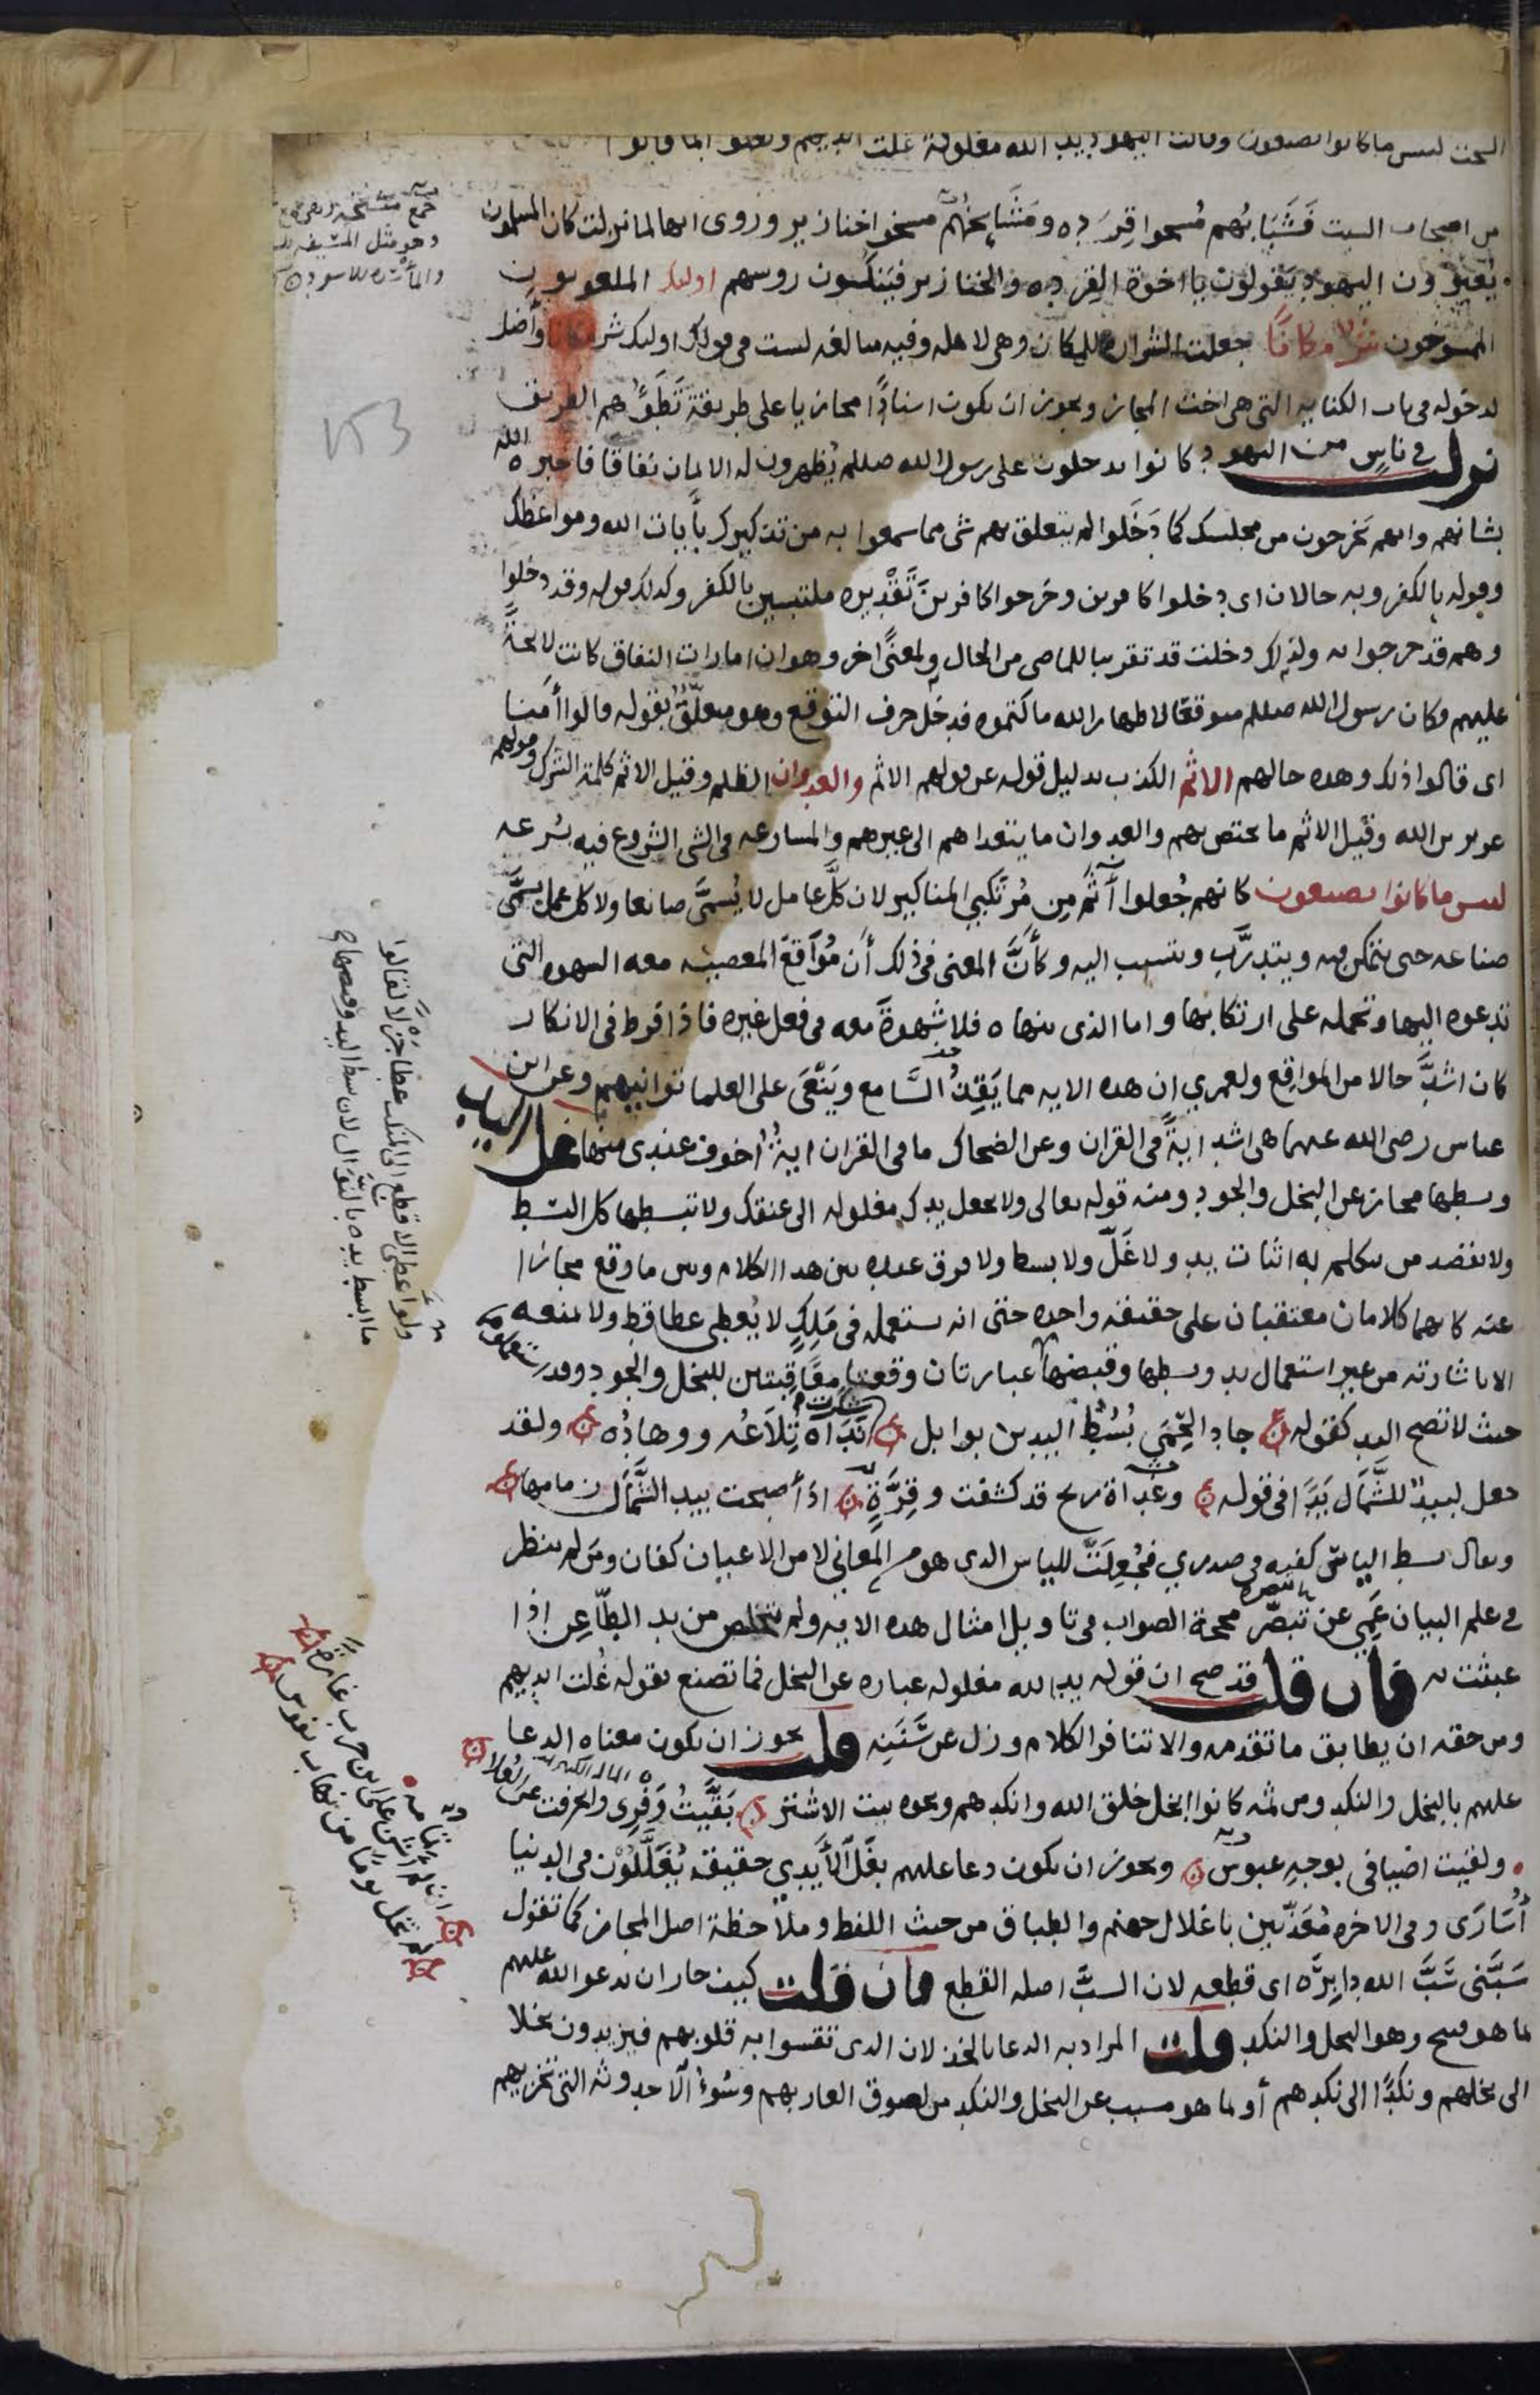 السحت لبئس ما كانوا يصنعون وقالت اليهود يد الله مغلولة غلت ايديهم ولعنوا بما قالوا
من اصحاب السبت فَشَبَابُهم مُسخوا قِرَدَه ومَشَايِخُهُم مسخوا خنازير وروى انها لما نزلت كان المسلمون
يُعيّرون اليهود يَقولون يا اخوة القِرده والخنازير فيَنكسون روسهم اولئك الملعونون
الممسوخون شر مكانا جعلت الشرارة للمكان وهى لاهله وفيه مبالغه ليست فى قولك اولئك شر مكانا وأضل
لدخوله فى باب الكناية التى هى اخت المجاز ويجوز ان يكون اسنادًا مجازيا على طريقة تَطَؤُهم الطريق
نزلت فى ناسٍ من اليهود كانوا يدخلون على رسول الله صللم يُظهرون له الايمان نفاقا فاخبره الله
بشانهم وانهم يَخرجون من مجلسك كما دَخَلوا لم يتعلق بهم شى مما سمعوا به من تذكيرك بأيات الله ومواعظك
وقوله بالكفر وبه حالان اى دخلوا كافرين وخرجوا كافرين تَقْدِيره ملتبسين بالكفر وكذلك قوله وقد دخلوا
وهم قد خرجوا به ولذلك دخلت قد تقريبا للماضى من الحال ولمعنًى اخر وهو ان امارات النفاق كانت لائحةً
عليهم وكان رسول الله صللم متوقعًا لاظهار الله ما كتموه فدخل حرف التوقع وهو متعلّقٌ بقوله قالوا أمنا
اى قالوا ذلك وهذه حالهم الاثم الكذب بدليل قوله عن قولهم الاثم والعدوان الظلم وقيل الاثم كلمة الشرك وقولهم
عزير بن الله وقيل الاثم ما يختص بهم والعدوان ما يتعداهم الى غيرهم والمسارعه فى الشى الشروع فيه بسُرعه
لبئس ما كانوا يصنعون كانهم جُعلوا أثَمَ مِن مُرتكبى المناكير لان كلَّ عامل لا يُسمَّى صانعا ولا كل عمل يسمَّى
صناعه حتى يتمكن فيه ويتدرَّب وينسب اليه وكأنَّ المعنى فى ذلك أن مُوَاقعَ المعصية معه الشهوه التى
تدعوه اليها وتحمله على ارتكابها واما الذى ينهاه فلا شهوةَ معه فى فعل غيره فاذا فرط فى الانكار
كان اشدَّ حالا من المواقِع ولعمري ان هذه الايه مما يَقِذُ السَّامع ويَنْعَى على العلما توانيهم وعن ابن
عباس رضى الله عنهما هى اشد ايةً فى القران وعن الضحاك ما فى القران ايةٌ اخوف عندى منها غل اليد
وبسطها مجاز عن البخل والجود ومنه قوله تعالى ولا تجعل يدك مغلوله الى عنقك ولا تبسطها كل البسط
ولا يقصد من يتكلم به اثبات يدٍ ولا غَلّ ولا بسط ولا فرق عنده بين هذا الكلام وبين ما وقع مجازا
عنه كانهما كلامان معتقبان على حقيقه واحده حتى انه يستعمله فى مَلِكٍ لا يُعطى عطا قط ولا يمنعه
الا باشارته من غير استعمال يد وبسطها وقبضها عبارتان وقعتا متعاقبتين للبخل والجود وقد استعملوها
حيث لا تصح اليد كقوله جاد الحِمَى بُسُطُ اليدين بوابل شكرت نَدَاهُ تِلاَعُه ووهادُه ولقد
جعل لبيدٌ للشَّمَال يَدًا فى قوله وغداة ريح قد كشفت وقِرَّةٍ اذ أصبحت بيد الشَّمَال زمامها
ويقال بسط الياس كفيه فى صدري فجُعِلَتْ للياس الذى هو من المعانى لا من الاعيان كفان ومن لم ينظر
فى علم البيان عَمِىَ عن تبصّر محجة الصواب فى تاويل امثال هذه الايه ولم يتخلص من يد الطّاعن اذا
عبثت به فان قلت قد صح ان قوله يد الله مغلوله عباره عن البخل فما تصنع بقوله غُلت ايديهم
ومن حقه ان يطابق ما تقدمه والا تنافر الكلام وزل عن سَنَنِه قلت يجوز ان يكون معناه الدعا
عليهم بالبخل والنكد ومن ثمه كانوا ابخل خلق الله وانكدهم ونحوه بيت الاشتر بَقَّيْتُ وَفْرِى وانحرفت عن العُلا
ولقيت اضيافى بوجهِ عبوس ويجوز ان يكون دعا عليهم بغَل الأَيدي حقيقة يُغَلَّلُوْن فى الدنيا
أُسَارَى وفى الاخره مُعَذَّبين باغلال جهنم والطباق من حيث اللفظ وملاحظة اصل المجاز كما تقول
سَبَّنى سَبَّ الله دابِرَه اى قطعه لان السبَّ اصله القطع فان قلت كيف جاز ان يدعو الله عليهم
بما هو قبيح وهو البخل والنكد قلت المراد به الدعا بالخذلان الذى تقسوا به قلوبهم فيزيدون بخلا
الى بخلهم ونكدًا الى نكدهم أو بما هو مسبب عن البخل والنكد من لصوق العار بهم وسُوءُ الاحدوثه التى تخزيهم
جمع مشيخة
وهو مثل
للاسود
ولو أعطى الاقطع الى المنكب عطاءً جَزْلًا لقالوا
ما ابسط يده بالنَّوال لان بسط اليد وقبضها
ان لم اشن على ابن حرب غارةً
لم تخل يوما من نهاب نفوس